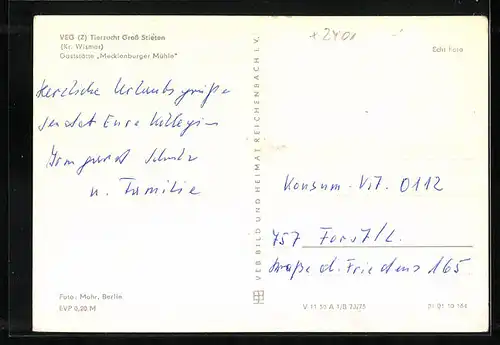 VEG (Z) Tierzucht Groß Stieten
(Kr. Wismar)
Gaststätte „Mecklenburger Mühle"
x 2401
Echt Foto
Herzliche Urlaubsgrüße
sendet Eure Kollegin
Irmgard Schulz
u. Familie
VEB BILD UND HEIMAT REICHENBACH I. V.
Konsum-Vst. 0112
757 Forst/L.
Straße d. Friedens 165
Foto: Mohr, Berlin
EVP 0,20 M
V 11 50 A 1/B 73/75
01 01 10 164